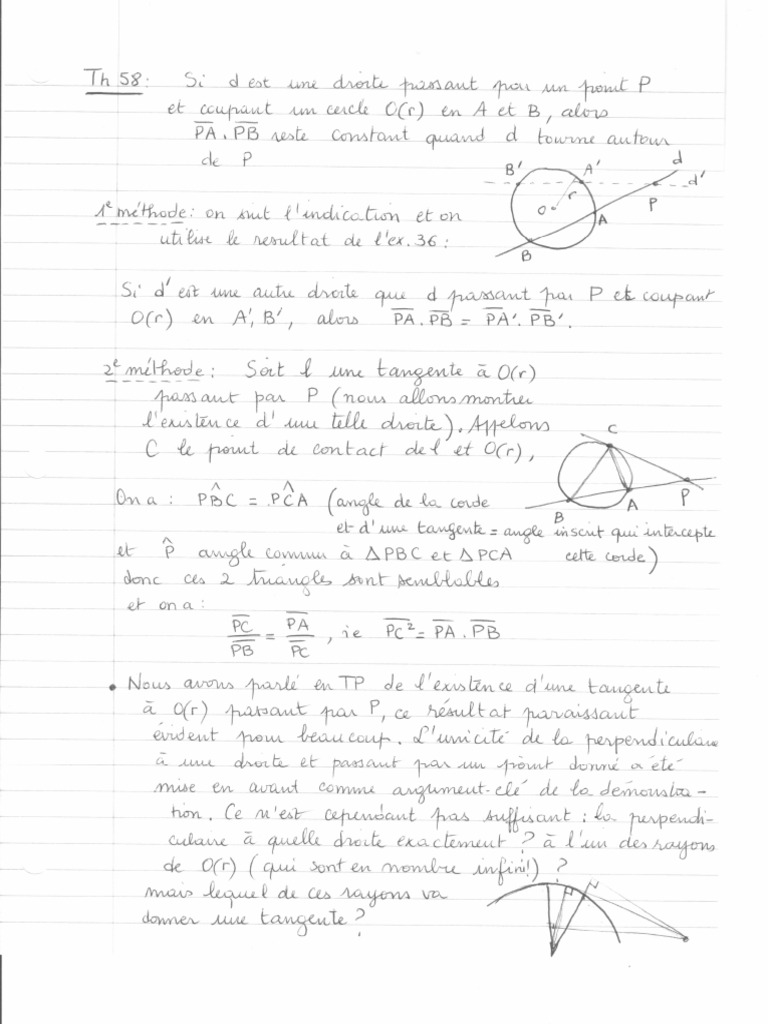 Th 58: Si d est une droite passant par un point P
et coupant un cercle O(r) en A et B, alors
P̅A̅ . P̅B̅ reste constant quand d tourne autour
de P
B' A' d d' O r P A B
1e méthode: on suit l'indication et on
utilise le resultat de l'ex. 36 :
Si d' est une autre droite que d passant par P et coupant
O(r) en A', B', alors P̅A̅ . P̅B̅ = P̅A̅'. P̅B̅'.
2e méthode: Soit l une tangente à O(r)
passant par P (nous allons montrer
l'existence d'une telle droite). Appelons
C le point de contact de l et O(r),
C A P B
On a : PB̂C = PĈA (angle de la corde
et d'une tangente = angle inscrit qui intercepte
cette corde)
et P̂ angle commun à ΔPBC et ΔPCA
donc ces 2 triangles sont semblables
et on a :
P̅C̅/P̅B̅ = P̅A̅/P̅C̅ , ie P̅C̅² = P̅A̅ . P̅B̅
• Nous avons parlé en TP de l'existence d'une tangente
à O(r) passant par P, ce résultat paraissant
évident pour beaucoup. L'unicité de la perpendiculaire
à une droite et passant par un point donné a été
mise en avant comme argument-clé de la démonstra-
tion. Ce n'est cependant pas suffisant : la perpendi-
culaire à quelle droite exactement ? à l'un des rayons
de O(r) (qui sont en nombre infini!) ?
mais lequel de ces rayons va
donner une tangente ?